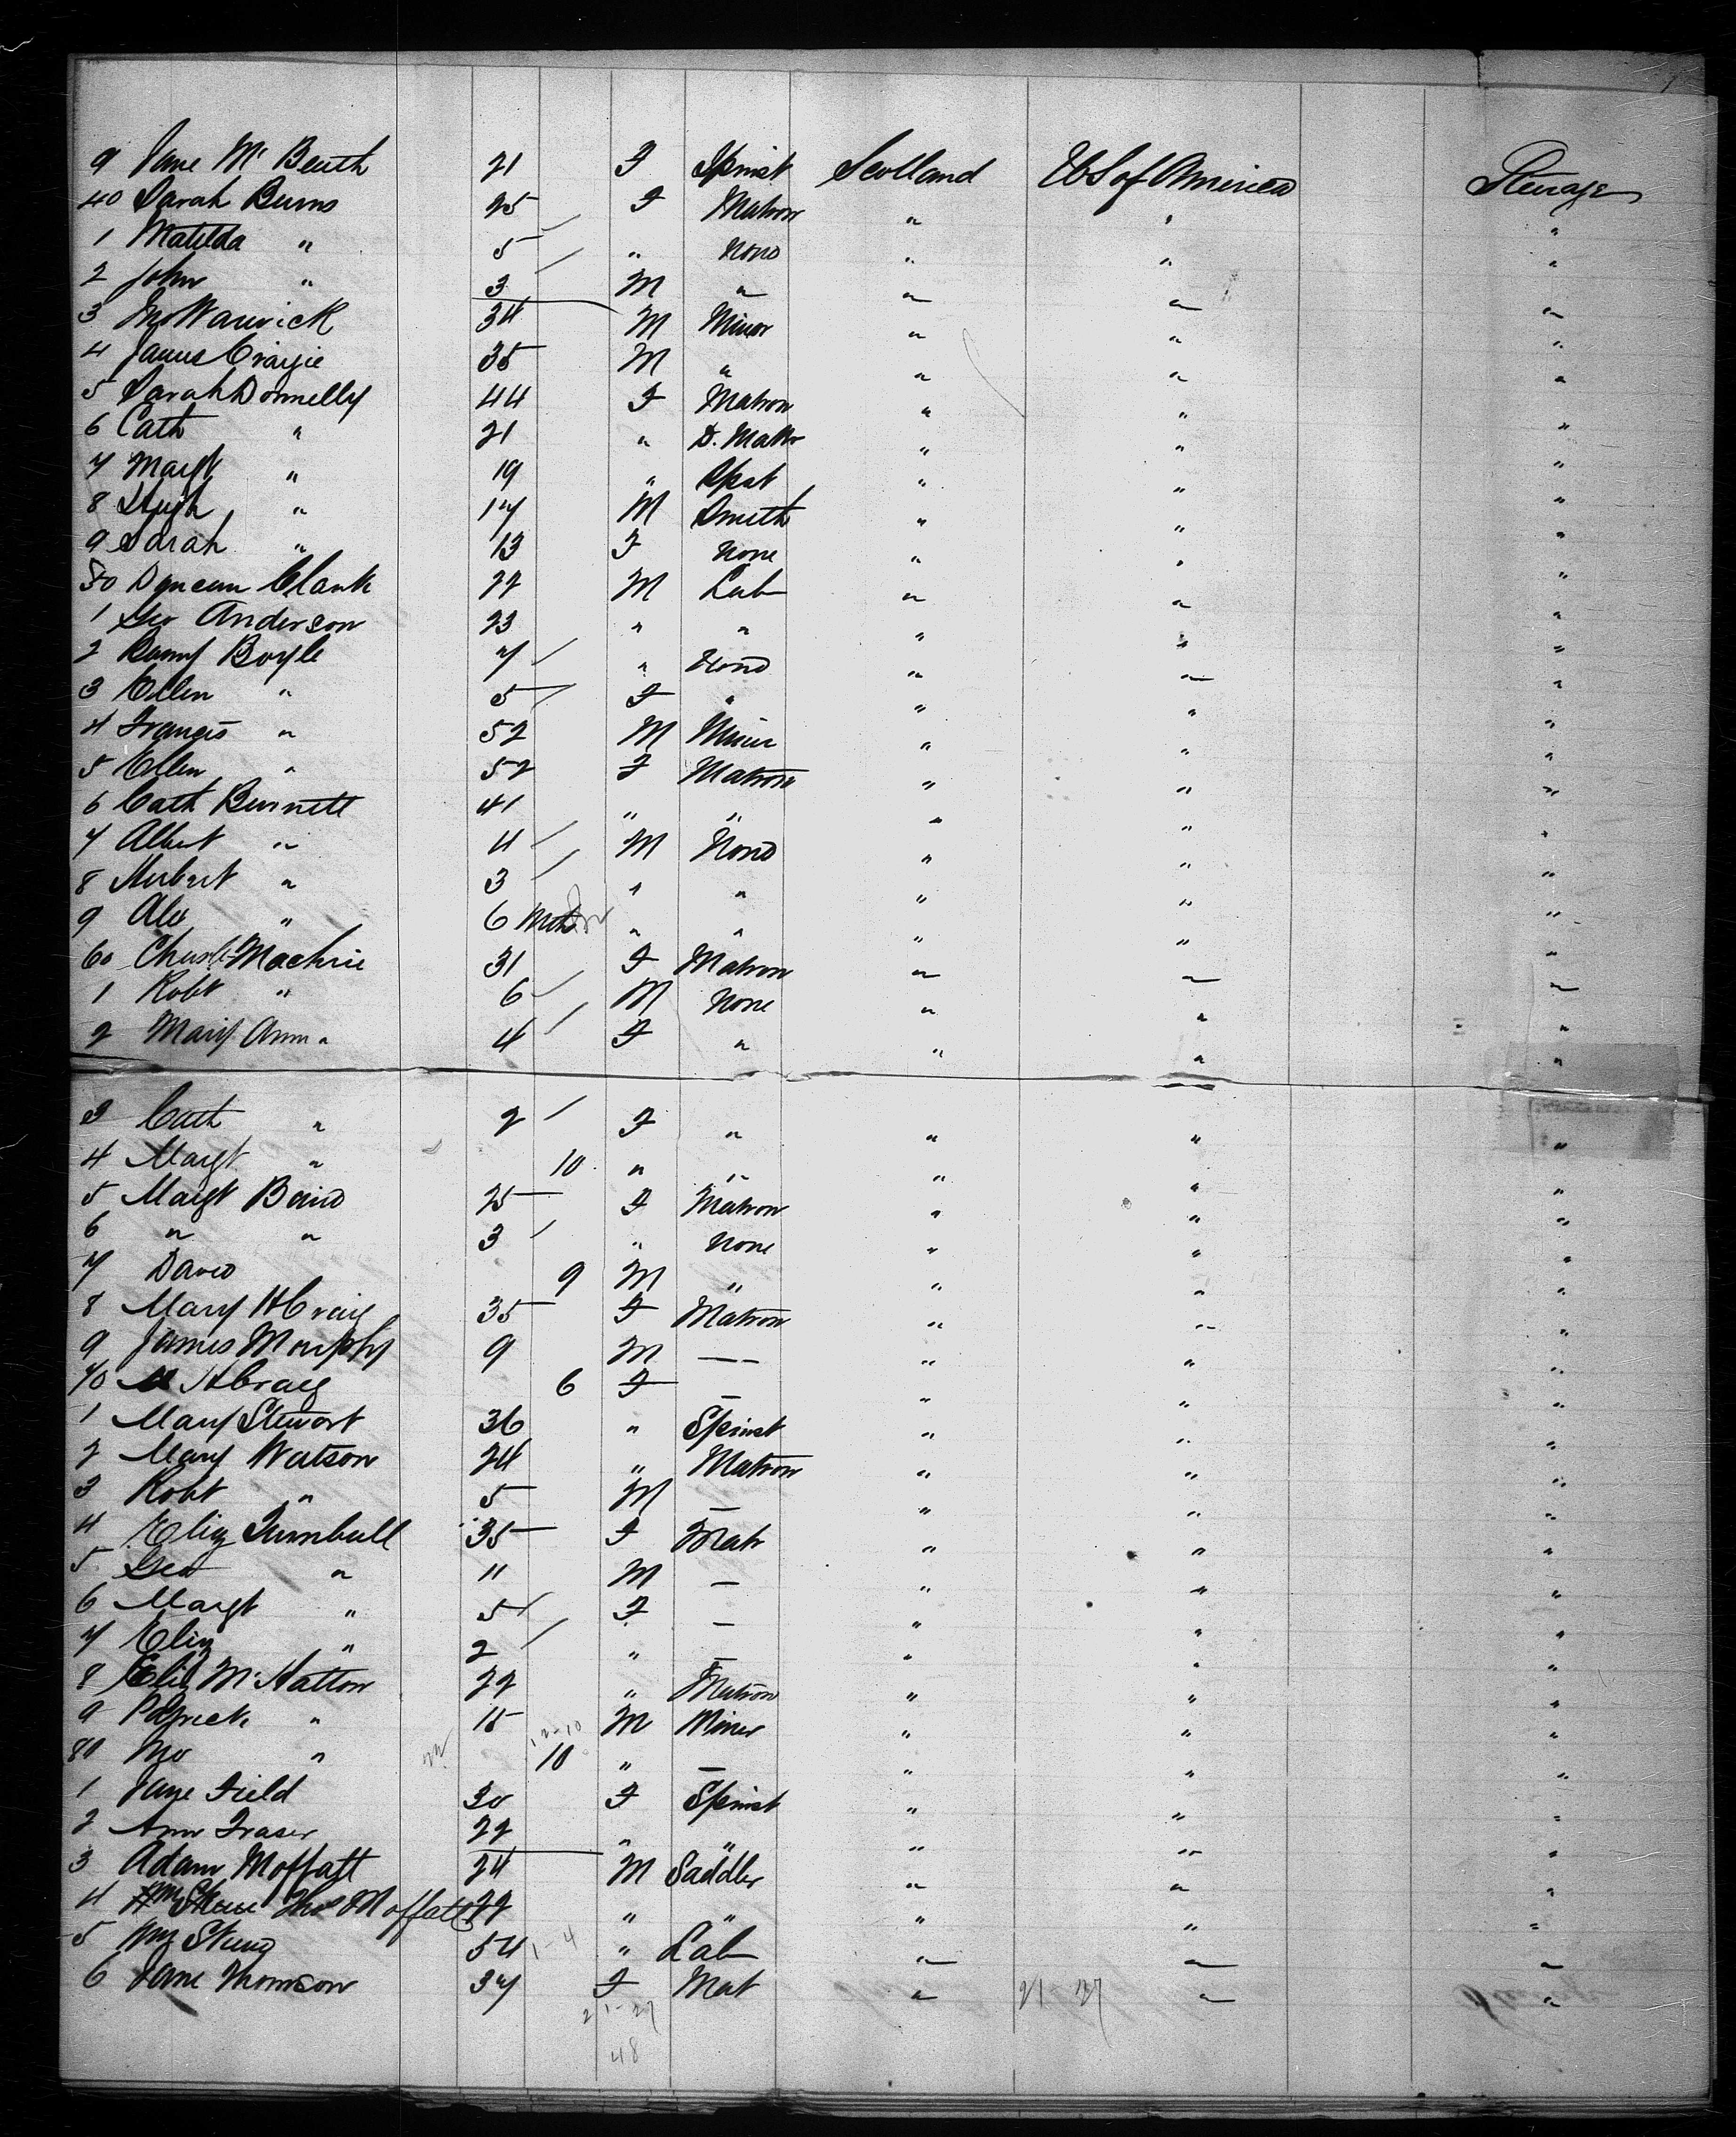 9 Jane Mc Beuth 21 F Spinst Scotland US of America Steerage
40 Sarah Burns 25 F Matron " " "
1 Matilda " 5 " None " " "
2 John " 3 M " " " "
3 Jno Warwick 34 M Miner " " "
4 James Craigie 35 M " " " "
5 Sarah Donnelly 44 F Matron " " "
6 Cath " 21 " D. Matr " " "
7 Margt " 19 " Spst " " "
8 Hugh " 17 M Smith " " "
9 Sarah " 13 F None " " "
50 Duncan Clark 22 M Lab " " "
1 Geo Anderson 23 " " " " "
2 Boyle 7 " None " " "
3 Ellen " 5 F " " " "
4 Francis " 52 M Miner " " "
5 Ellen " 52 F Matron " " "
6 Cath Burnett 41 " " " " "
7 Albert " 4 M None " " "
8 Herbert " 3 " " " " "
9 Alex " 6 Mths " " " " "
60 Machrie 31 F Matron " " "
1 Robt " 6 M None " " "
2 Mary Ann " 4 F " " " "
3 Cath " 2 F " " " "
4 Margt " 10 " " " " "
5 Margt Baird 25 F Matron " " "
6 " " 3 " None " " "
7 David 9 M " " " "
8 Mary H Craig 35 F Matron " " "
9 James Murphy 9 M — " " "
70 M H Craig 6 F — " " "
1 Mary Stewart 36 " Spinst " " "
2 Mary Watson 24 " Matron " " "
3 Robt " 5 M — " " "
4 Eliz Turnbull 35 F Mat " " "
5 Geo " 11 M — " " "
6 Margt " 5 F — " " "
7 Eliz " 2 " — " " "
8 Eliz McHatton 22 " Matron " " "
9 Patrick " 18 M Miner " " "
80 Jno " 10 " — " " "
1 Jane Field 30 F Spinst " " "
2 Ann Fraser 22 " " " " "
3 Adam Moffatt 24 M Saddler " " "
4 Thos Moffatt 22 " " " " "
5 Wm 54 1-4 " Lab " " "
6 Jane Thomson 37 F Mat " 21-27 " "
21-27
48